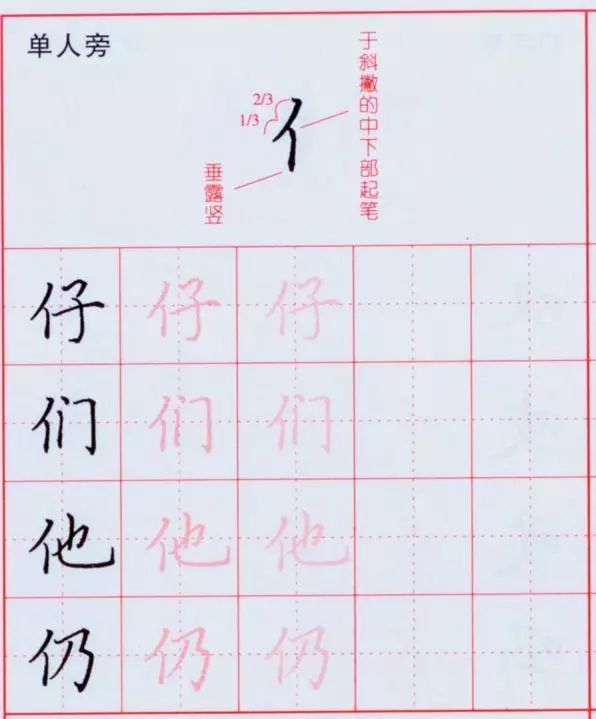 单人旁
亻
2/3
1/3
于斜撇的中下部起笔
垂露竖
仔仔仔
们们们
他他他
仍仍仍